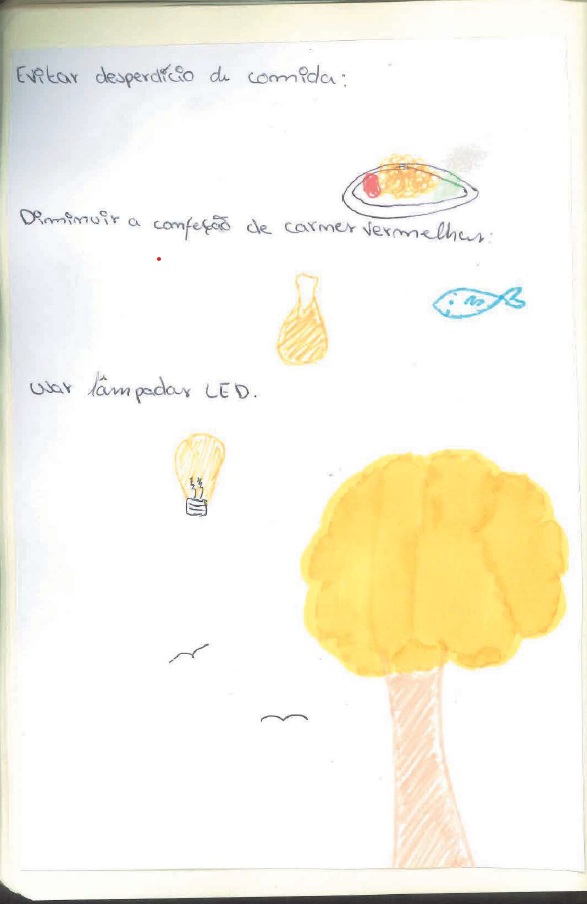 Evitar desperdício de comida:
Diminuir a confeção de carnes vermelhas:
Usar lâmpadas LED.